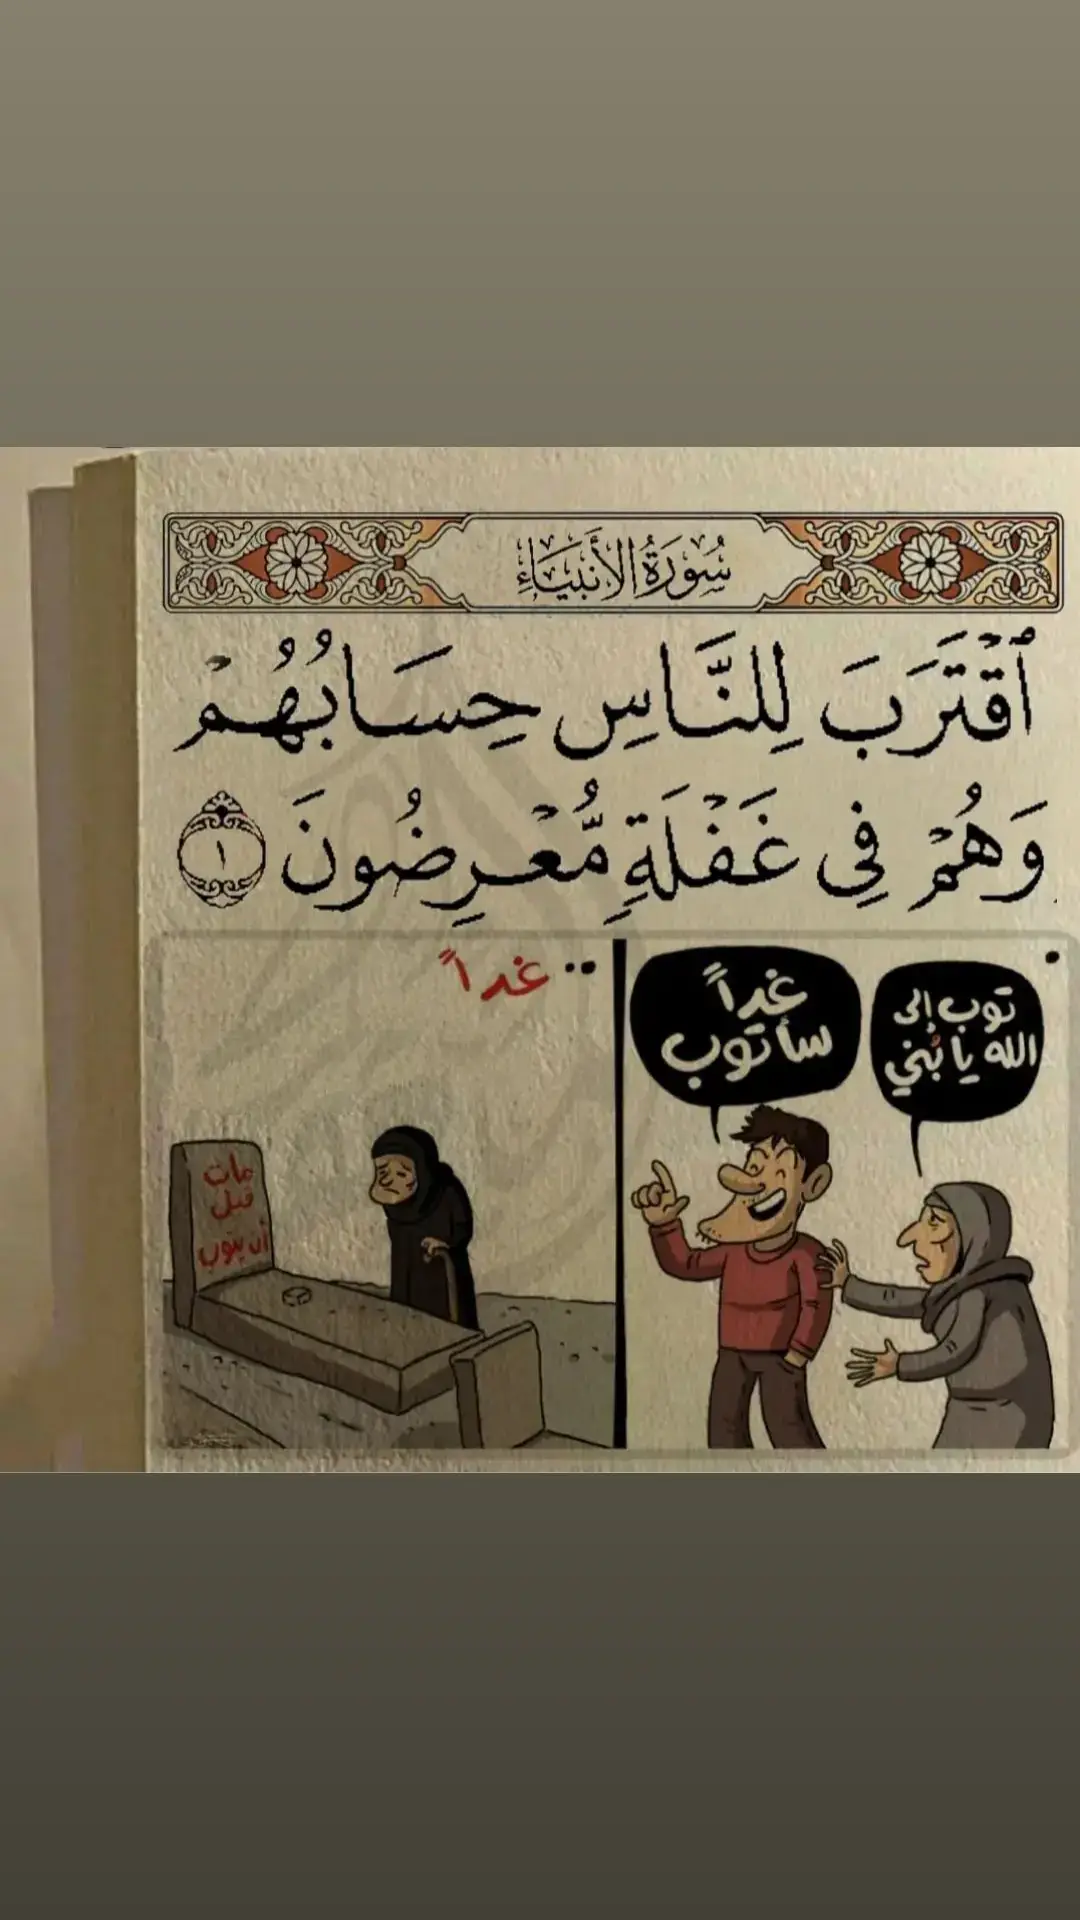 سُورَةُ الأَنبِيَاءِ
ٱقْتَرَبَ لِلنَّاسِ حِسَابُهُمْ
وَهُمْ فِى غَفْلَةٍ مُّعْرِضُونَ ١
توب إلى
الله يا بُني
غداً
سأتوب
.. غداً
مات
قبل
أن يتوب